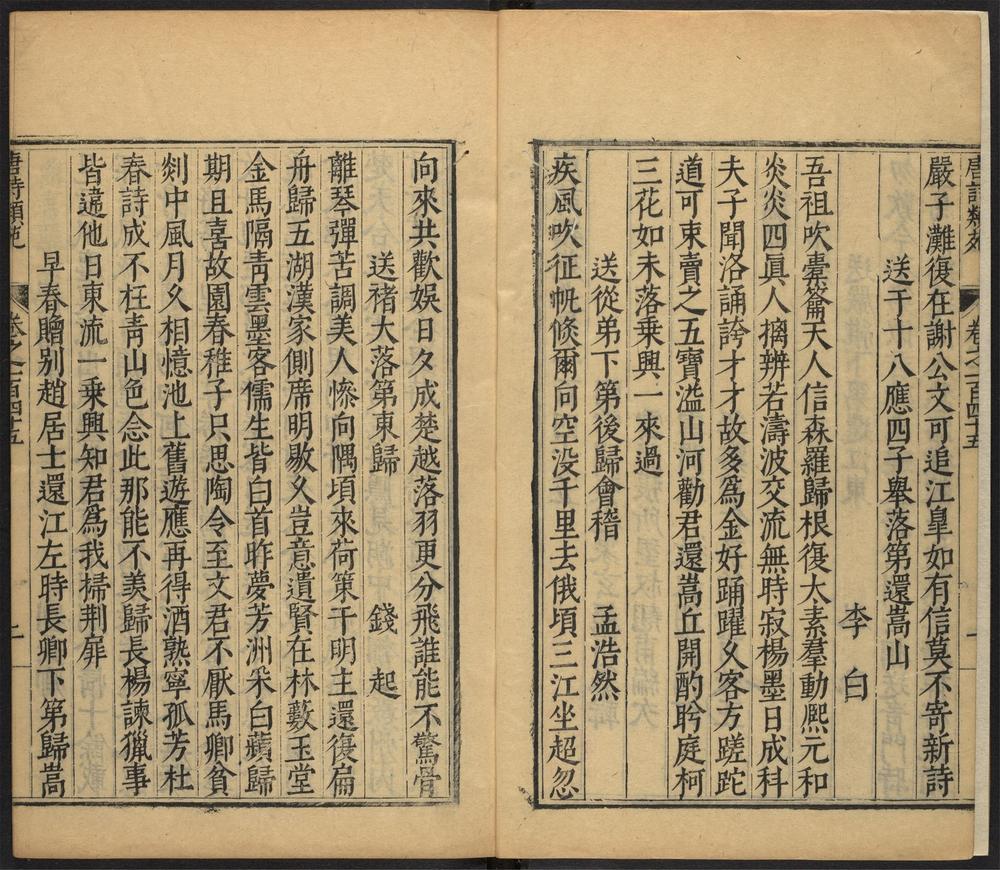 唐詩類苑 卷之一百四十五
嚴子灘復在謝公文可追江皐如有信莫不寄新詩
送于十八應四子舉落第還嵩山
李白
吾祖吹橐籥天人信森羅歸根復太素羣動熈元和
炎炎四眞人摛辨若濤波交流無時寂楊墨日成科
夫子聞洛誦誇才才故多爲金好踊躍久客方蹉跎
道可束賣之五寶溢山河勸君還嵩丘開酌盻庭柯
三花如未落乗興一來過
送從弟下第後歸會稽 孟浩然
疾風吹征帆倐爾向空没千里去俄頃三江坐超忽
向來共歡娛日夕成楚越落羽更分飛誰能不驚骨
送禇大落第東歸 錢起
離琴彈苦調美人慘向隅頃來荷策干明主還復扁
舟歸五湖漢家側席明敭久豈意遺賢在林藪玉堂
金馬隔青雲墨客儒生皆白首昨夢芳洲采白蘋歸
期且喜故園春稚子只思陶令至文君不厭馬卿貧
剡中風月久相憶池上舊遊應再得酒熟寜孤芳杜
春詩成不枉青山色念此那能不羡歸長楊諫獵事
皆違他日東流一乗興知君爲我掃荆扉
早春贈别趙居士還江左時長卿下第歸嵩
唐詩類苑 卷之一百四十五 二